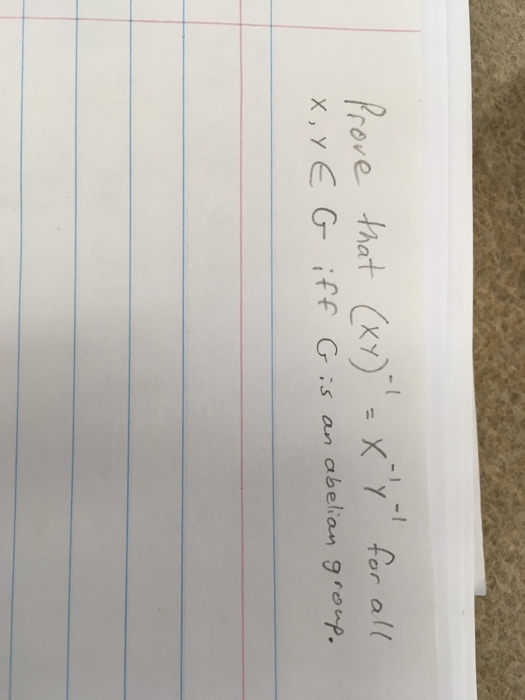 Prove that (XY)⁻¹ = X⁻¹Y⁻¹ for all
X, Y ∈ G iff G is an abelian group.